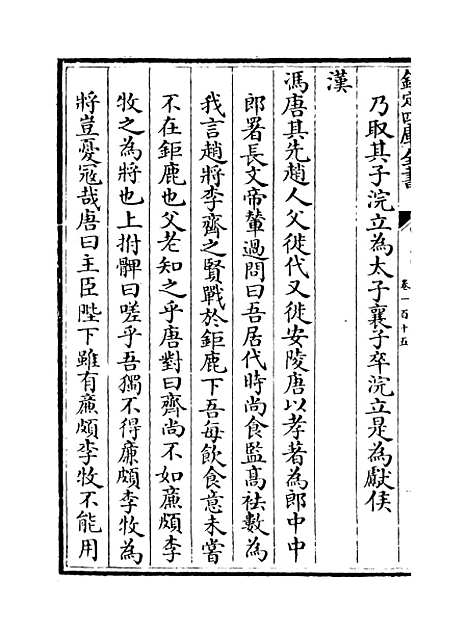 欽定四庫全書
卷一百十五
乃取其子浣立為太子襄子卒浣立是為獻侯
漢
馮唐其先趙人父徙代又徙安陵唐以孝著為郎中中
郎署長文帝輦過問曰吾居代時尚食監髙袪數為
我言趙將李齊之賢戰於鉅鹿下吾每飲食意未嘗
不在鉅鹿也父老知之乎唐對曰齊尚不如廉頗李
牧之為將也上拊髀曰嗟乎吾獨不得廉頗李牧為
將豈憂寇哉唐曰主臣陛下雖有廉頗李牧不能用